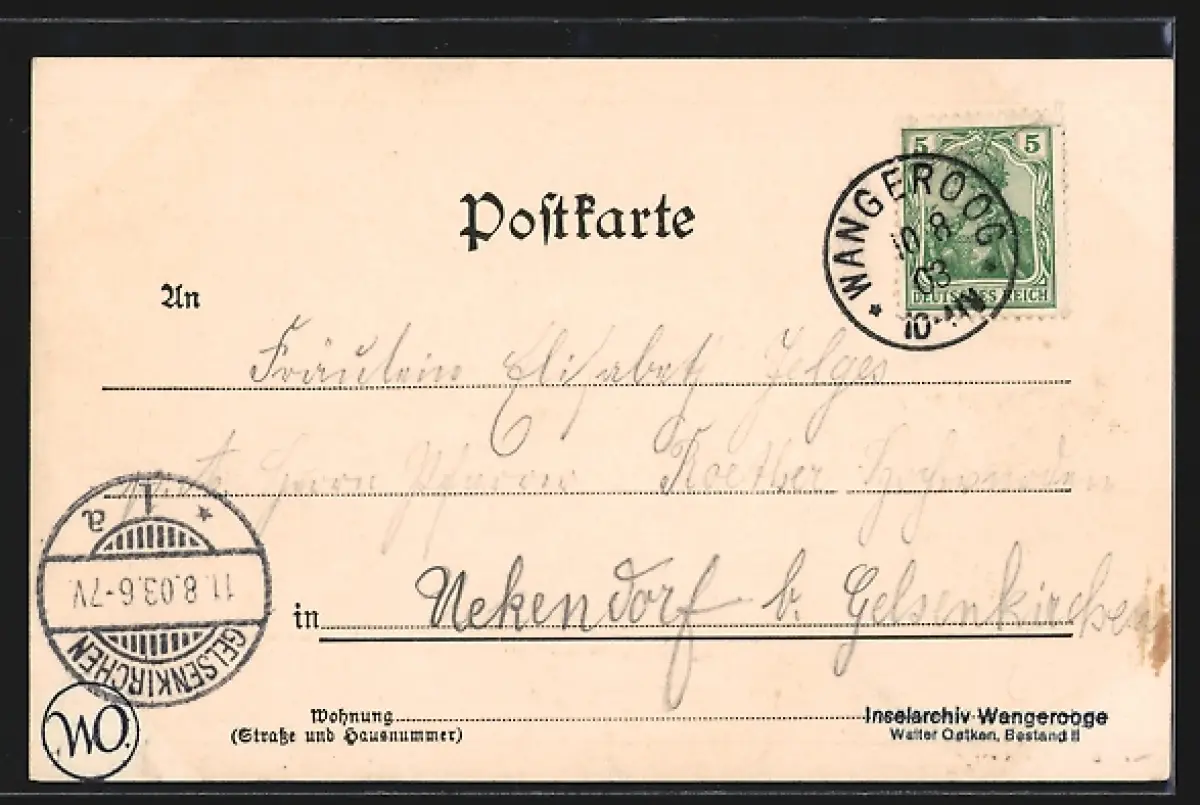 5 5
DEUTSCHES REICH
WANGEROOG
10 8
03
10-11V
Postkarte
An
Fräulein Elisabeth Jelges
Herrn Pfarrer Koether Hochwürden
1 a
11.8.03.6-7V.
GELSENKIRCHEN
in Uekendorf b. Gelsenkirchen
Wohnung
(Straße und Hausnummer)
Inselarchiv Wangerooge
Walter Oetken, Bestand II
WO.